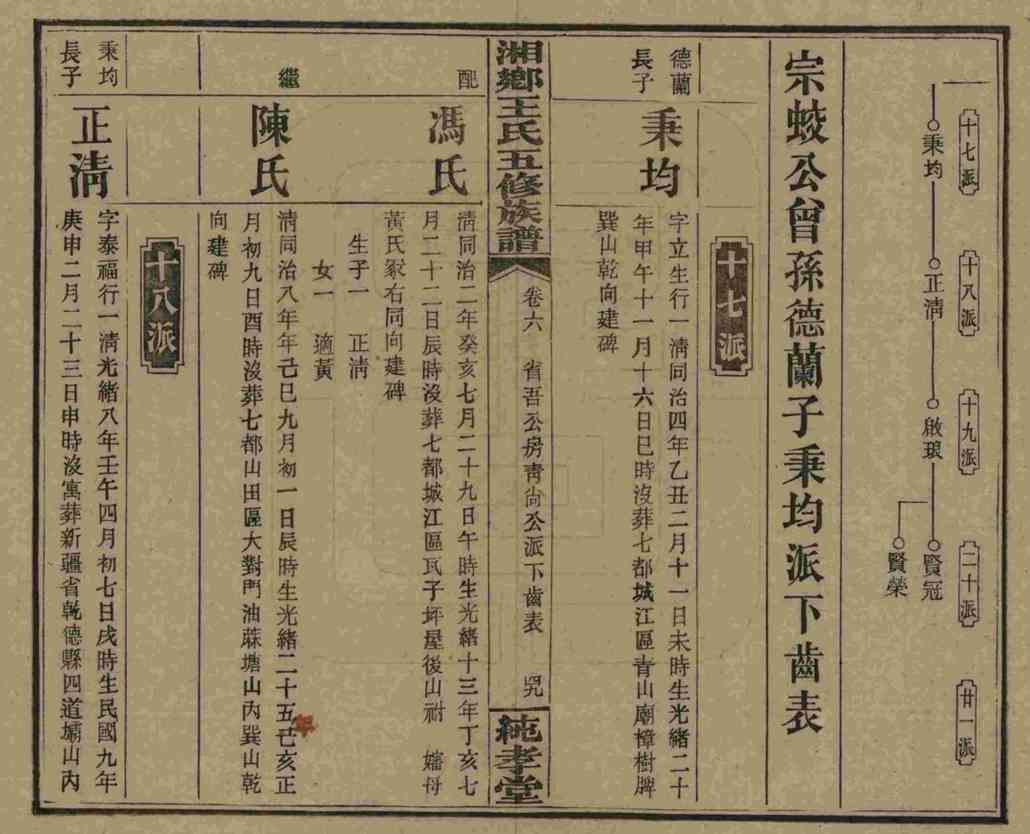 十七派
十八派
十九派
二十派
廿一派
秉均
正淸
啟琅
賢冠
賢榮
宗蛟公曾孫德蘭子秉均派下齒表
十七派
德蘭
長子
秉均
字立生行一淸同治四年乙丑二月十一日未時生光緒二十
年甲午十一月十六日巳時沒葬七都城江區青山廟樟樹牌
巽山乾向建碑
湘鄉王氏五修族譜
卷六
省吾公房靑尙公派下齒表
純孝堂
配
馮氏
淸同治二年癸亥七月二十九日午時生光緒十三年丁亥七
月二十二日辰時沒葬七都城江區瓦子坪屋後山祔 嬸母
黃氏冢右同向建碑
生子一 正淸
女一 適黃
繼
陳氏
淸同治八年年己巳九月初一日辰時生光緒二十五己亥正
年
月初九日酉時沒葬七都山田區大對門油蔴塘山內巽山乾
向建碑
十八派
秉均
長子
正淸
字泰福行一淸光緒八年壬午四月初七日戌時生民國九年
庚申二月二十三日申時沒寓葬新疆省乾德縣四道壩山內